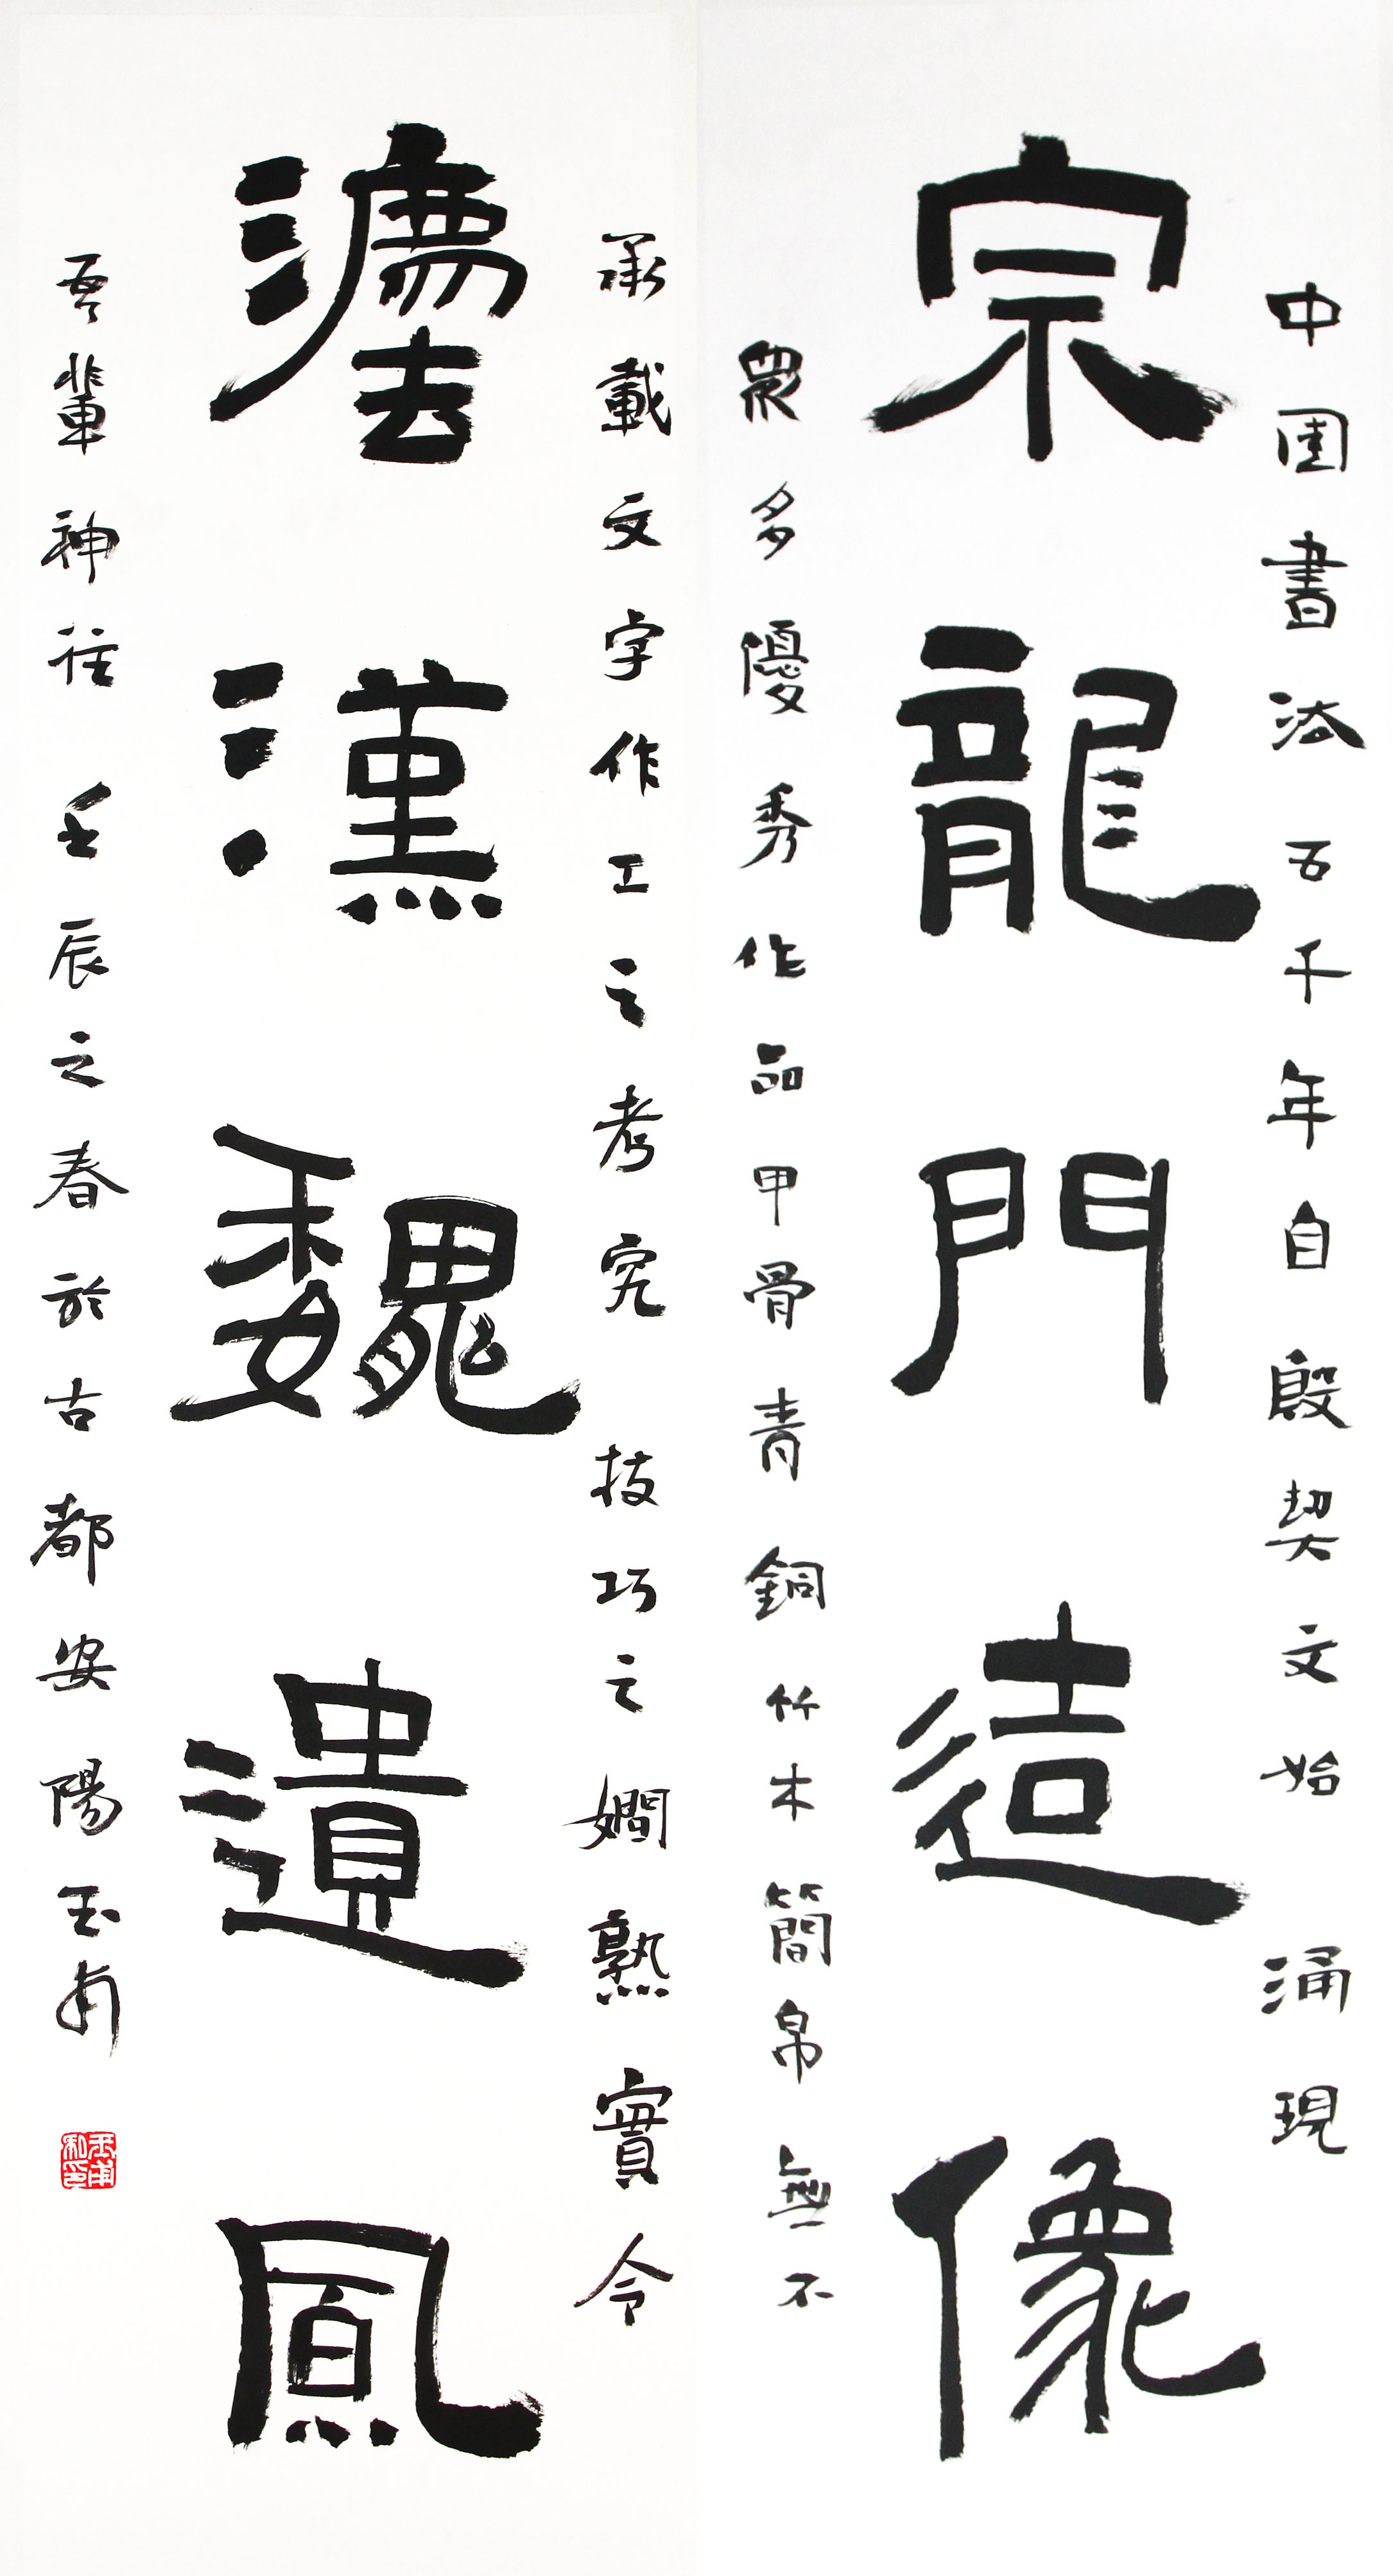 中囯書法五千年自殷契文始涌現
宗龍門造像
眾多優秀作品甲骨青銅竹木簡帛無不
承載文字作工之考究技巧之嫻熟實令
灋漢魏遺鳳
吾輩神往壬辰之春於古都安陽玉甫
玉甫私印